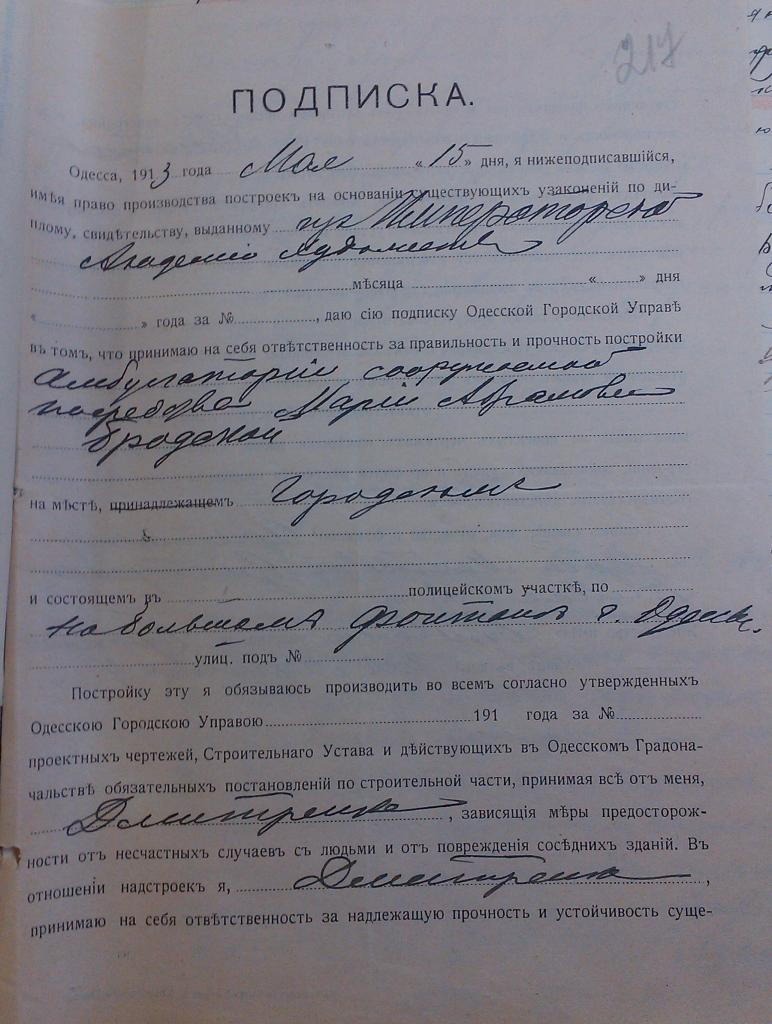 217
ПОДПИСКА.
Одесса, 1913 года Мая «15» дня, я нижеподписавшійся,
имѣя право производства построекъ на основаніи существующихъ узаконеній по ди-
плому, свидѣтельству, выданному изъ Императорской
Академіи Художествъ
мѣсяца « » дня
« » года за № , даю сію подписку Одесской Городской Управѣ
въ томъ, что принимаю на себя отвѣтственность за правильность и прочность постройки
Амбулаторіи сооружаемой
на средства Маріи Абрамовны
Бродской
на мѣстѣ, принадлежащемъ Городскомъ
и состоящемъ въ полицейскомъ участкѣ, по
на Большомъ Фонтанѣ г. Одессы.
улиц. подъ №
Постройку эту я обязываюсь производить во всемъ согласно утвержденныхъ
Одесскою Городскою Управою 191 года за №
проектныхъ чертежей, Строительнаго Устава и дѣйствующихъ въ Одесскомъ Градона-
чальствѣ обязательныхъ постановленій по строительной части, принимая всѣ отъ меня,
Дмитренко, зависящія мѣры предосторож-
ности отъ несчастныхъ случаевъ съ людьми и отъ поврежденія сосѣднихъ зданій. Въ
отношеніи надстроекъ я, Дмитренко,
принимаю на себя отвѣтственность за надлежащую прочность и устойчивость суще-